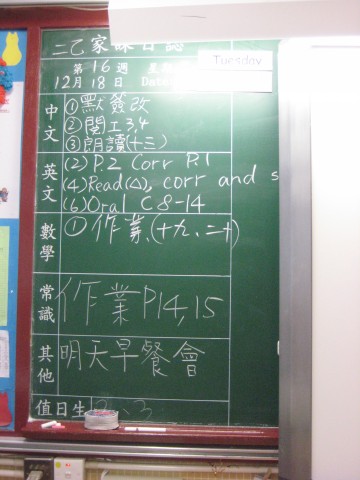 二乙家課日誌
第16週 星期
Tuesday
12月18日 Date
中文
①默簽改
②閱工3,4
③朗讀(十三)
英文
(2) P.2 Corr P.1
(4) Read(△), corr and s
(6) Oral C 8-14
數學
①作業(十九、二十)
常識
作業P14,15
其他
明天早餐會
值日生